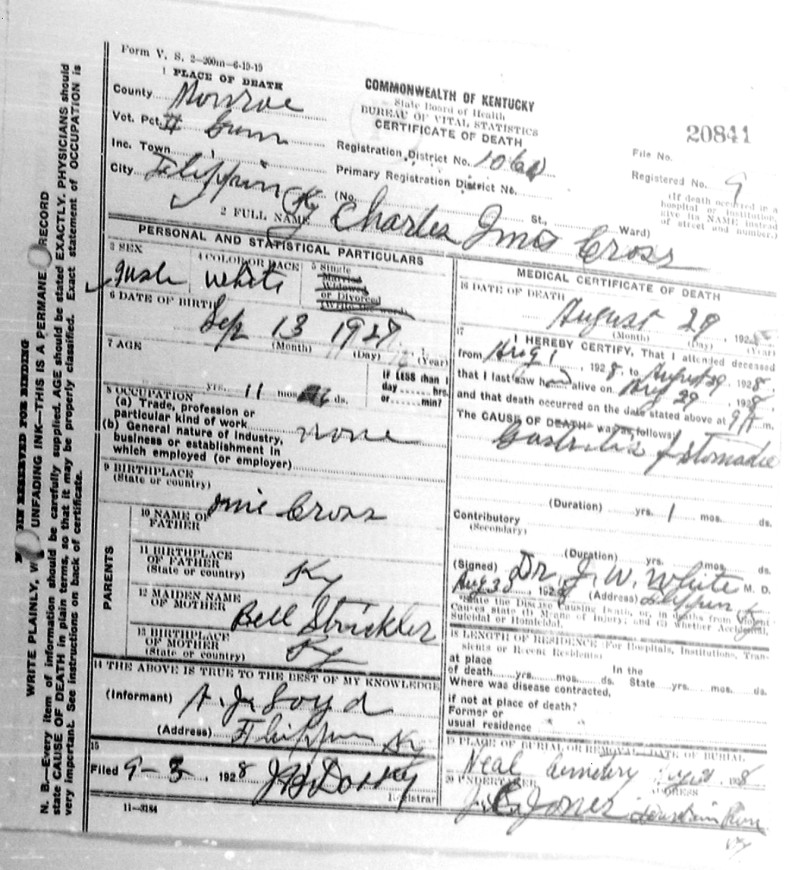 Form V. S. 2—200m—6-19-19
1 PLACE OF DEATH
County Monroe
Vot. Pct. # Gum
Inc. Town
City Flippin Ky
COMMONWEALTH OF KENTUCKY
State Board of Health
BUREAU OF VITAL STATISTICS
CERTIFICATE OF DEATH
Registration District No.
Primary Registration District No.
(No. St., Ward)
20841
File No.
Registered No. 9
(If death occurred in a
hospital or institution,
give its NAME instead
of street and number.)
2 FULL NAME Charles Cross
PERSONAL AND STATISTICAL PARTICULARS
3 SEX
male
4 COLOR OR RACE
White
5 Single
Married
Widowed
or Divorced
6 DATE OF BIRTH
Sep 13 1927
(Month) (Day) (Year)
7 AGE
yrs. 11 mos. ds.
If LESS than 1
day hrs.
or min?
8 OCCUPATION
(a) Trade, profession or
particular kind of work
(b) General nature of industry,
business or establishment in
which employed (or employer)
none
9 BIRTHPLACE
(State or country)
PARENTS
10 NAME OF
FATHER
Cross
11 BIRTHPLACE
OF FATHER
(State or country)
Ky
12 MAIDEN NAME
OF MOTHER
Bell Strickler
13 BIRTHPLACE
OF MOTHER
(State or country)
Ky
14 THE ABOVE IS TRUE TO THE BEST OF MY KNOWLEDGE
(Informant) A. J. Loyd
(Address) Flippin Ky
15
Filed 9-3, 1928
Registrar
11—3184
MEDICAL CERTIFICATE OF DEATH
16 DATE OF DEATH
August 29 192
(Month) (Day) (Year)
17
I HEREBY CERTIFY, That I attended deceased
from Aug 1, 1928, to August 29, 1928,
that I last saw h alive on Aug 29, 1928,
and that death occurred on the date stated above at 9 A m.
The CAUSE OF DEATH was as follows:
(Duration) yrs. 1 mos. ds.
Contributory
(Secondary)
(Duration) yrs. mos. ds.
(Signed) Dr J. W. White M. D.
Aug 30, 1928 (Address) Flippin K
State the Disease Causing Death, or, in deaths from Violent
Causes state (1) Means of Injury; and (2) whether Accidental,
Suicidal or Homicidal.
18 LENGTH OF RESIDENCE (For Hospitals, Institutions, Transients
or Recent Residents)
at place
of death yrs. mos. ds.
In the
State yrs. mos. ds.
Where was disease contracted,
if not at place of death?
Former or
usual residence
19 PLACE OF BURIAL OR REMOVAL
DATE OF BURIAL
Neal Cemetery
20 UNDERTAKER
ADDRESS
Jones Fountain Run
Ky
MARGIN RESERVED FOR BINDING
WRITE PLAINLY, WITH UNFADING INK—THIS IS A PERMANENT RECORD
N. B.—Every item of information should be carefully supplied. AGE should be stated EXACTLY. PHYSICIANS should
state CAUSE OF DEATH in plain terms, so that it may be properly classified. Exact statement of OCCUPATION is
very important. See instructions on back of certificate.